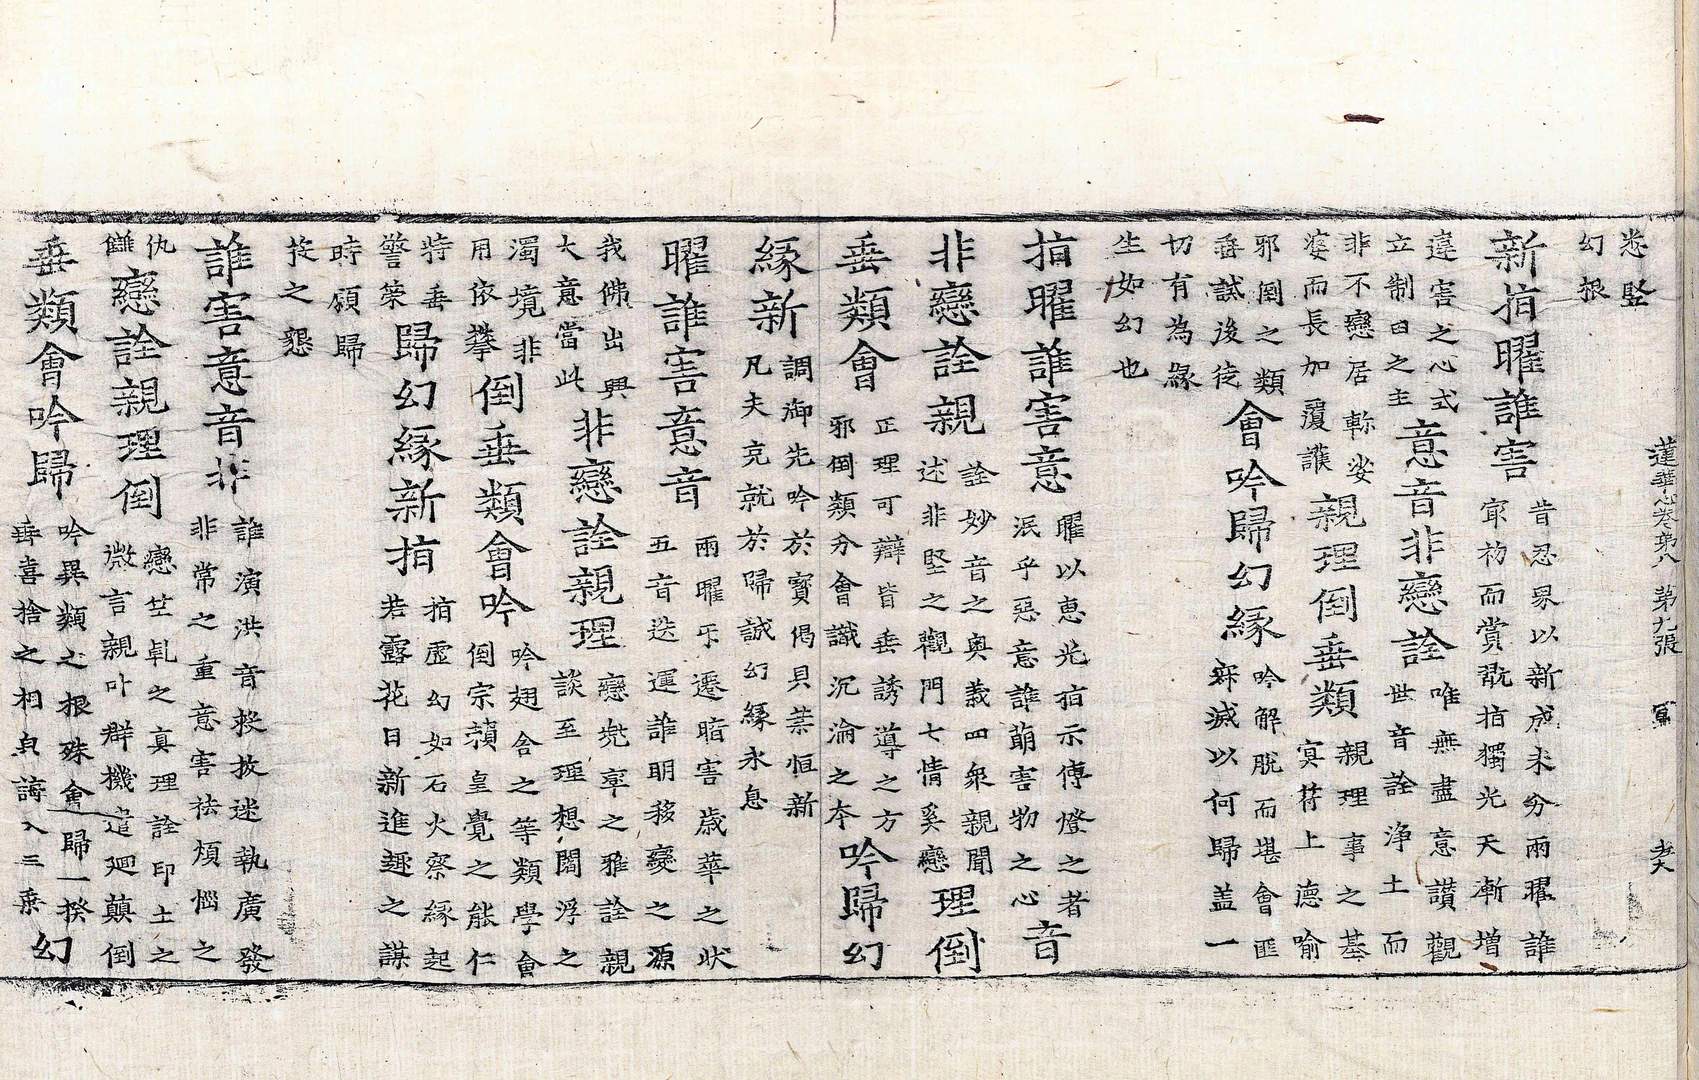 蓮華心卷第八 第九張
悉堅
幻根
新指曜誰害
昔忍界以新成未分兩曜誰
㝡初而賞翫指獨光天漸增
違害之心式
立制曰之主
意音非戀詮
唯無盡意讃觀
世音詮淨土而
非不戀居娑
婆而長加覆護
親理倒垂類
親理事之基
冥符上德喻
邪倒之類
垂試後徒
會吟歸幻緣
吟解脫而堪會匪
寂滅以何歸盖一
切有為緣
生如幻也
指曜誰害意
曜以惠光指示傳燈之者
泯乎惡意誰萌害物之心
音
非戀詮親
詮妙音之奧義四衆親聞
述非堅之觀門七情奚戀
理倒
垂類會
正理可辯皆垂誘導之方
邪倒類分會識沉淪之本
吟歸幻
緣新
調御先吟於寶偈貝葉恒新
凡夫克就於歸誠幻緣永息
曜誰害意音
兩曜遷暗害歲華之狀
五音迭運誰明移變之源
我佛出興
大意當此
非戀詮親理
戀兠率之雅詮親
談至理想閻浮之
濁境非
用依攀
倒垂類會吟
吟含之等類學會
倒宗皇覺之能仁
特垂
警策
歸幻緣新指
指虛幻如石火察緣起
若露花日新進趣之謀
時願歸
從之懇
誰害意音非
誰演洪音救拔迷執廣發
非常之重意害祛煩惱之
仇
讎
戀詮親理倒
戀竺乹之真理詮印土之
微言親叶群機遣廻顛倒
垂類會吟歸
吟異類之根殊會歸一揆
垂喜捨之相貞誘入三乘
幻